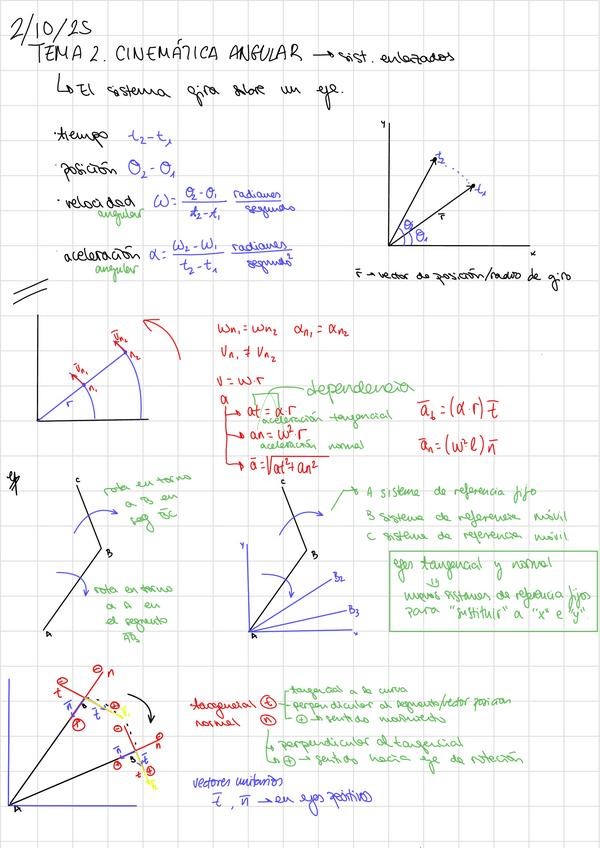 2/10/25
TEMA 2. CINEMÁTICA ANGULAR → sist. enlazados
↳ El sistema gira sobre un eje.
· tiempo t₂-t₁
· posición θ₂-θ₁
· velocidad angular ω = θ₂-θ₁ / t₂-t₁ radianes/segundo
· aceleración angular α = ω₂-ω₁ / t₂-t₁ radianes/segundo²
y
t₂
t₁
r̄
θ₂
θ₁
x
r̄ → vector de posición/radio de giro
v̄n₂
n₂
v̄n₁
n₁
r
ωn₁ = ωn₂ αn₁ = αn₂
vn₁ ≠ vn₂
v = ω·r
dependencia
a
→ at = α·r
aceleración tangencial
→ an = ω²·r
aceleración normal
→ ā = √at²+an²
āt = (α·r) t̄
ān = (ω²·l) n̄
ej
C
rota en torno
a B en
seg B̅C̅
B
rota en torno
a A en
el segmento
A̅B̅
A
C
B
y
B₂
B₃
A
x
A sistema de referencia fijo
B sistema de referencia móvil
C sistema de referencia móvil
ejes tangencial y normal
⇓
nuevos sistemas de referencia fijos
para "sustituir" a "x" e "y"
t
n
n̄
t̄
B
n
n̄
t̄
B
t
A
tangencial (t)
tangencial a la curva
perpendicular al segmento/vector posición
⊕ → sentido movimiento
normal (n)
↳ perpendicular al tangencial
↳ ⊕ → sentido hacia eje de rotación
vectores unitarios
t̄, n̄ → en ejes positivos